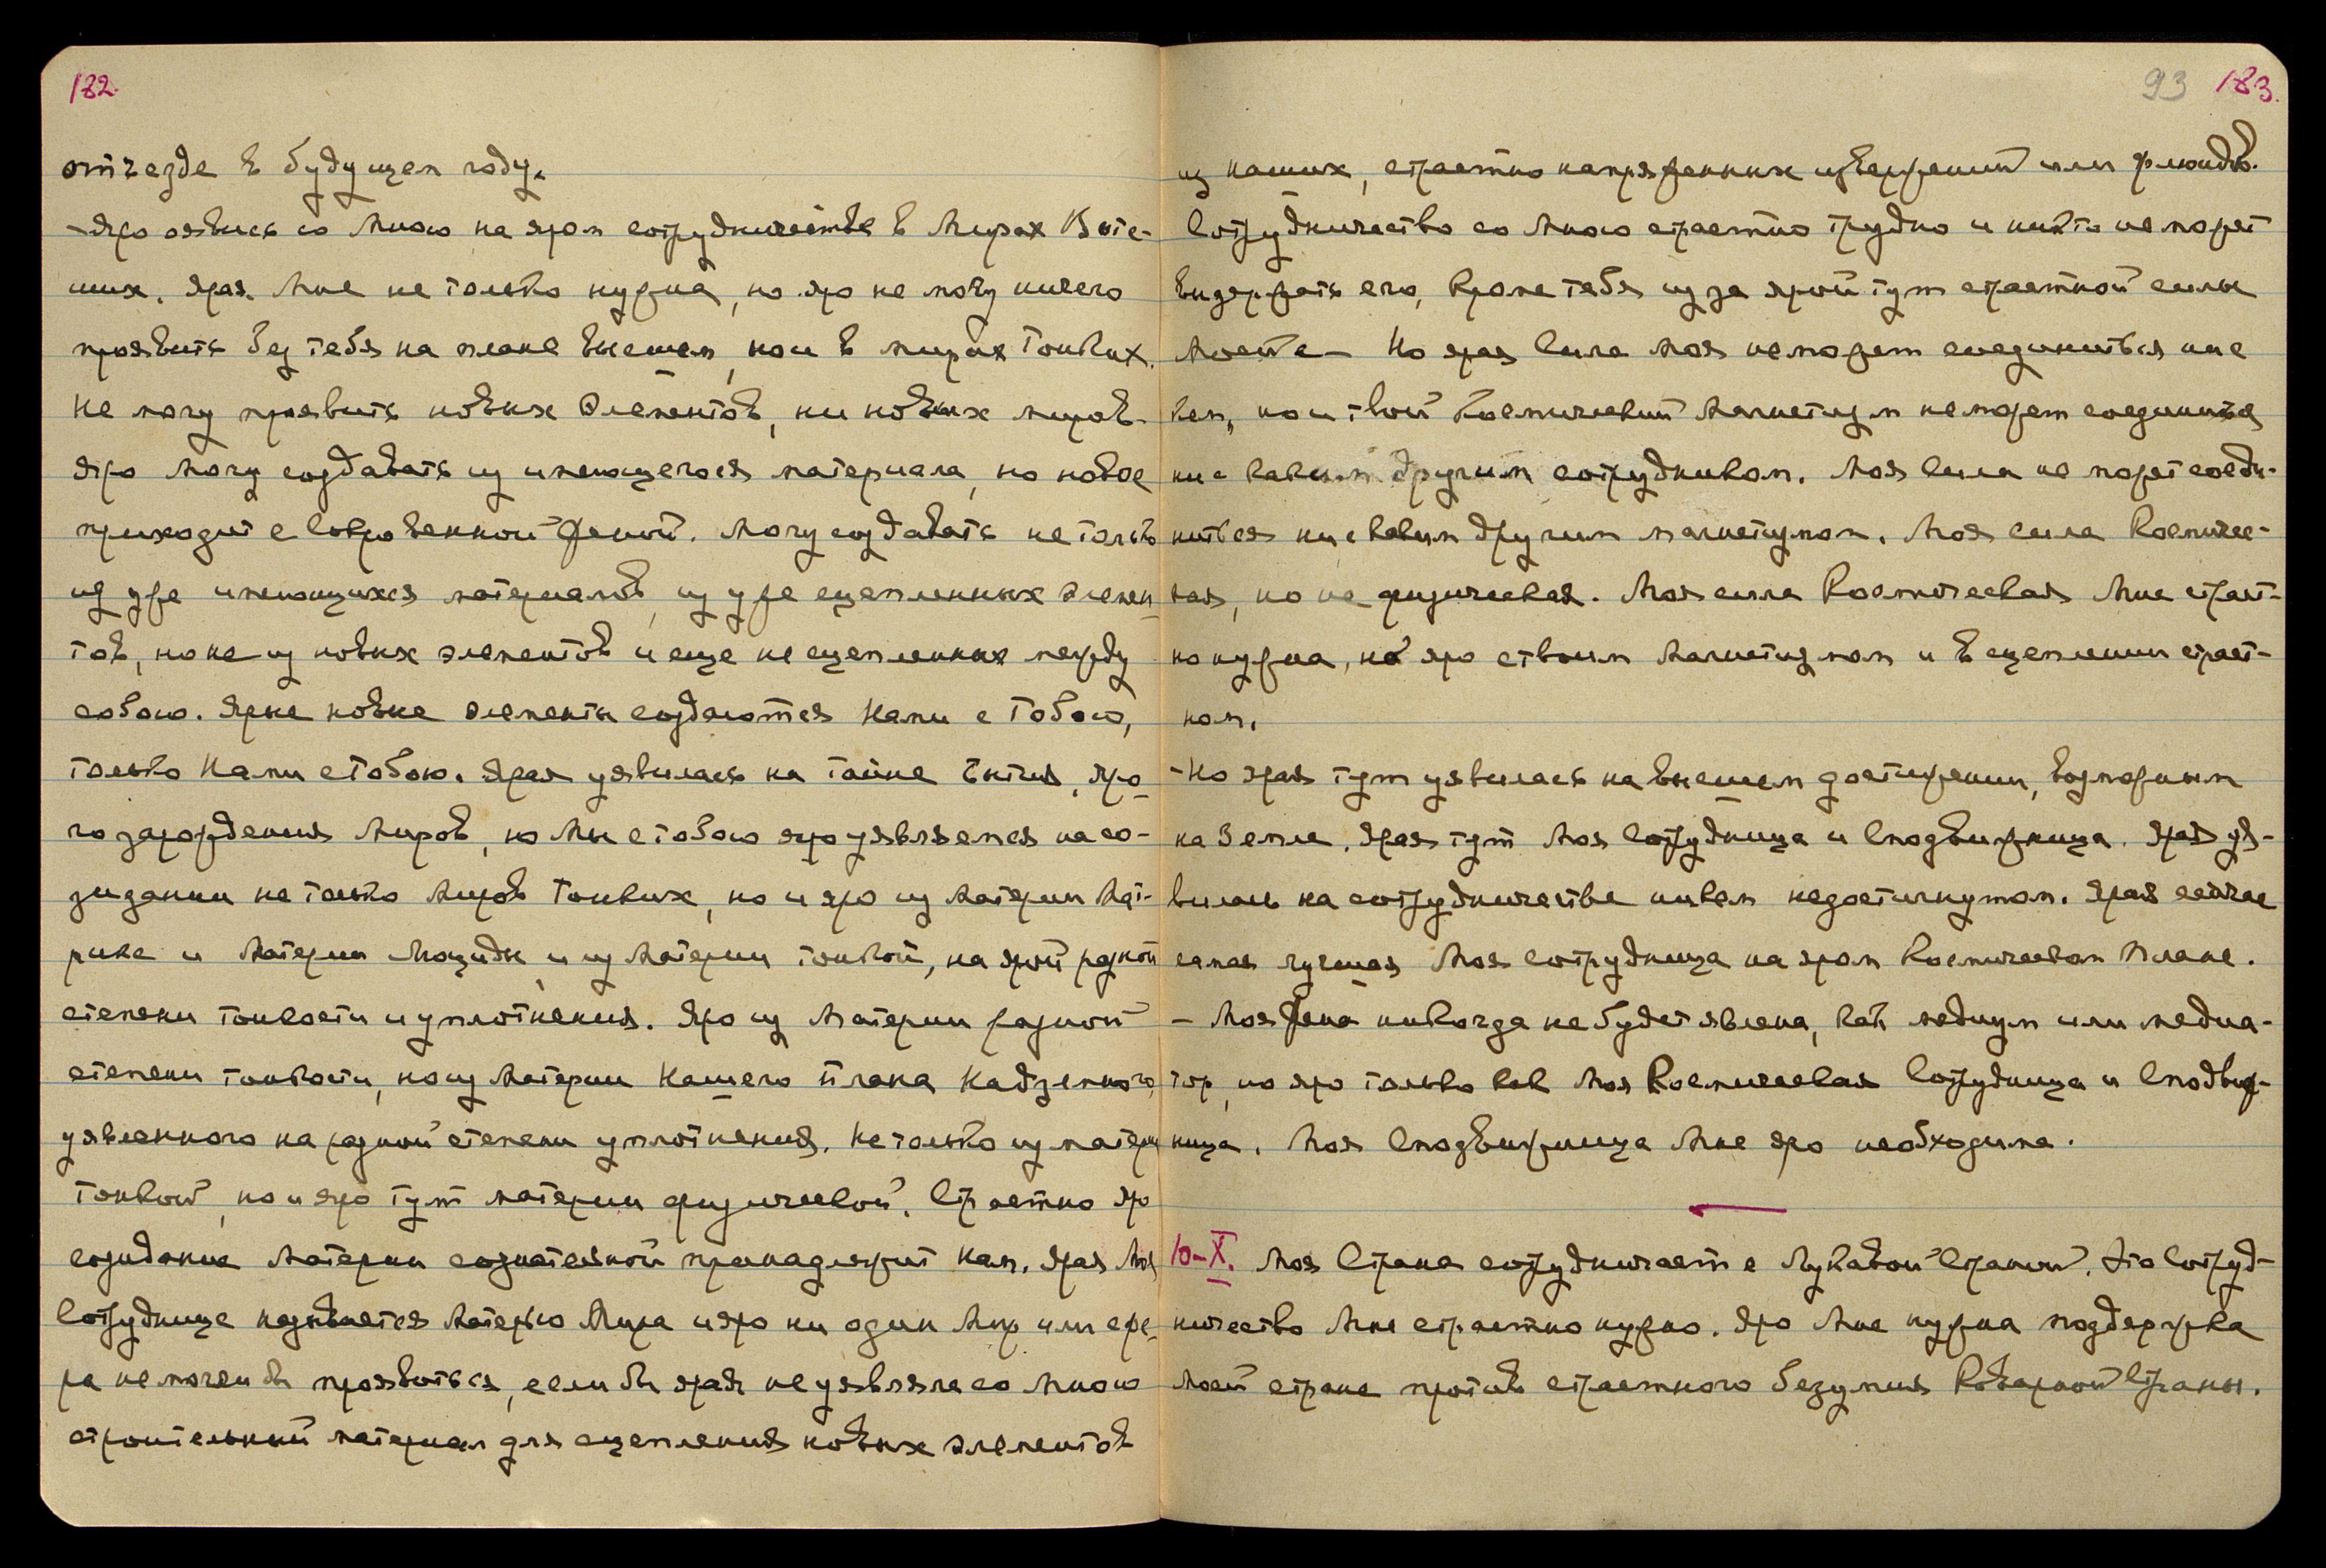 182.
отъезде в будущем году.
– Яро оявись со Мною на яром сотрудничестве в Мирах Выс-
ших. Ярая Мне не только нужна, но яро не могу ничего
проявить без тебя на плане внешнем, но и в мирах Тонких.
Не могу проявить новых Элементов, ни новых миров.
Яро Могу создавать из имеющегося материала, но новое
приходит с Сокровенной Женой. Могу создавать не только
из уже имеющихся материалов, из уже сцепленных элемен-
тов, но не из новых элементов и еще не сцепленных между
собою. Ярые новые элементы создаются Нами с Тобою,
только Нами с Тобою. Ярая уявилась на тайне бытия, яро-
го зарождения Миров, но Мы с тобою яро уявляемся на со-
зидании не только Миров Тонких, но и яро из Материи Мат-
рикс и Материи Люциды, и из Материи тонкой, на ярой разной
степени тонкости и уплотнения. Яро из Материи разной
степени тонкости, но из Материи Нашего плана Надземного,
уявленного на разной степени уплотнения. Не только из матери
тонкой, но и яро тут материи физической. Страстно яро
созидание Материи сознательной принадлежит Нам. Ярая Моя
Сотрудница называется Матерью Мира и яро ни один Мир или сфе-
ра не могли бы проявиться, если бы ярая не уявляла со Мною
строительный материал для сцепления новых элементов
93 183.
из наших, страстно напряженных извержений или флюидов.
Сотрудничество со Мною страстно трудно и никто не может
выдержать его, кроме тебя из за ярой тут страстной силы
Моей. – Но ярая Сила Моя не может соединиться ни с
кем, но и твой Космический Магнетизм не может соединиться
ни с каким другим сотрудником. Моя Сила не может соеди-
ниться ни с каким другим магнетизмом. Моя сила Космичес-
кая, но не физическая. Моя сила Космическая Мне страст-
но нужна, но яро с твоим Магнетизмом и в сцеплении страст-
ном.
– Но ярая тут уявилась на высшем достижении, возможном
на Земле. Ярая тут Моя Сотрудница и Сподвижница. Ярая уя-
вилась на сотрудничестве никем недостигнутом. Ярая сейчас
самая лучшая Моя сотрудница на яром Космическом Плане.
– Моя Жена никогда не будет явлена, как медиум или медиа-
тор, но яро только как Моя Космическая Сотрудница и Сподвиж-
ница. Моя Сподвижница Мне яро необходима.
10–X. Моя Страна сотрудничает с Лукавой Страной. Это Сотруд-
ничество Мне страстно нужно. Яро Мне нужна поддержка
Моей стране против страстного безумия Коварной Страны.